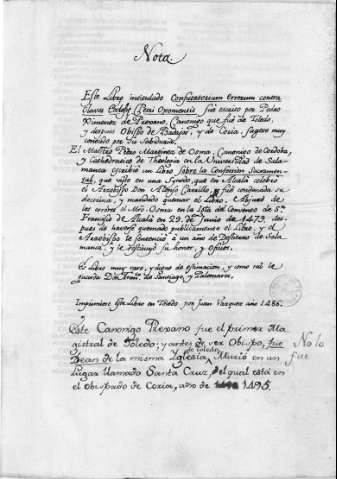 Nota
Este Libro intitulado Confutatorium Errorum contra
Claves Ecclesiæ Petri Oxomensis fué escrito por Pedro
Ximenez de Prexano, Canonigo que fué de Toledo,
y despues Obispo de Badajoz, y de Coria, sugeto muy
conocido por su Sabiduria.
El Maestro Pedro Martinez de Osma, Canonigo de Cordoba,
y Cathedratico de Theologia en la Universidad de Sala-
manca escribió un Libro sobre la Confesion Sacramen-
tal, que visto en una Junta, que en Alcalá celebró
el Arzobispo Don Alonso Carrillo, fué condenada su
doctrina, y mandado quemar el Libro. Abjuró de
los errores el Mro. Osma en la Iglª del Convento de Sn.
Francisco de Alcalá en 29. de Junio de 1479. des-
pues de haverse quemado publicamente el Libro, y el
Arzobispo le sentenció á un año de Destierro de Sala-
manca, y le restituyó su honor, y oficios.
Es Libro muy raro, y digno de estimacion, y como tal le
guarda de Santiago, y Palomares.
Imprimiose este Libro en Toledo por Juan Vazquez año 1486.
Este Canonigo Prexano fue el primer Ma
gistral de Toledo; y antes de ser Obispo, fue No lo
Dean de la misma Yglesia de toledo. Murió en un fue
Lugar llamado Santa Cruz, el qual está en
el Obispado de Coria, año de 1495.